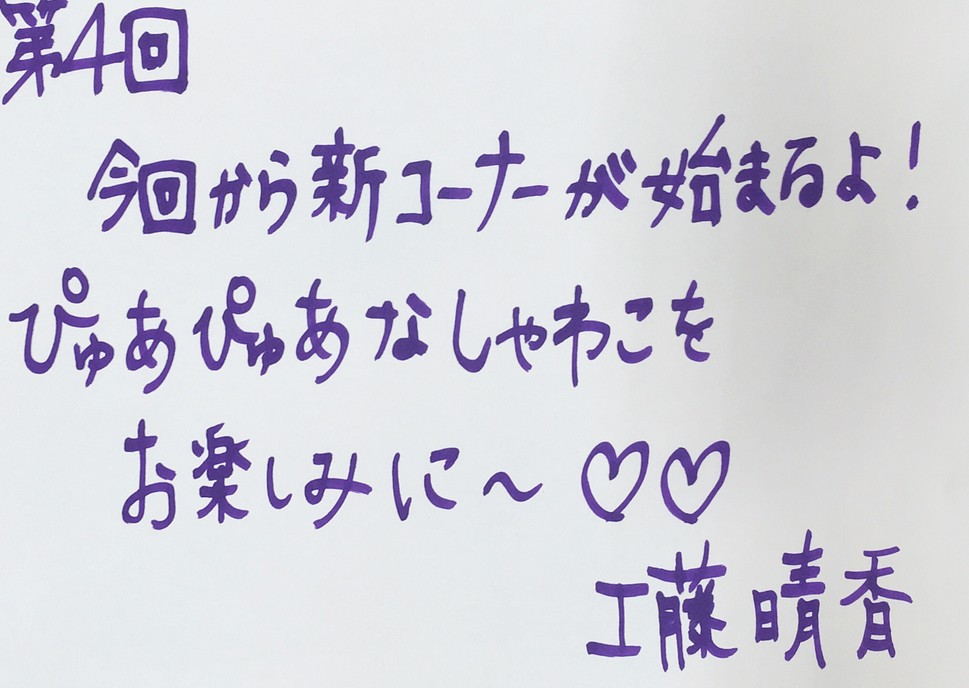 第4回
今回から新コーナーが始まるよ!
ぴゅあぴゅあなしゃわこを
お楽しみに〜♡♡
工藤晴香